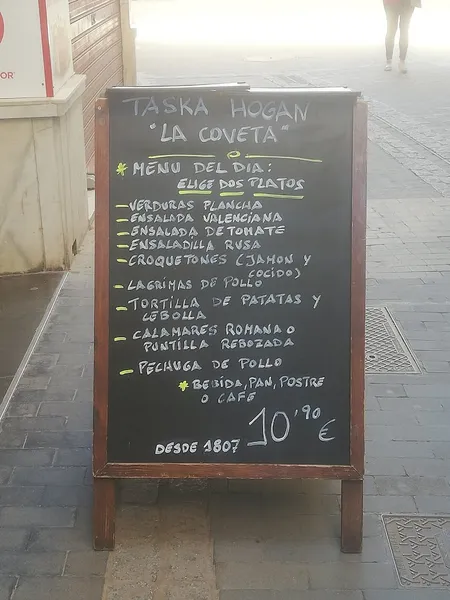 OR
TASKA HOGAN
"LA COVETA"
* MENU DEL DIA:
ELIGE DOS PLATOS
- VERDURAS PLANCHA
- ENSALADA VALENCIANA
- ENSALADA DE TOMATE
- ENSALADILLA RUSA
- CROQUETONES (JAMON Y
COCIDO)
- LAGRIMAS DE POLLO
- TORTILLA DE PATATAS Y
CEBOLLA
- CALAMARES ROMANA O
PUNTILLA REBOZADA
- PECHUGA DE POLLO
* BEBIDA, PAN, POSTRE
O CAFE
10'90 €
DESDE 1807